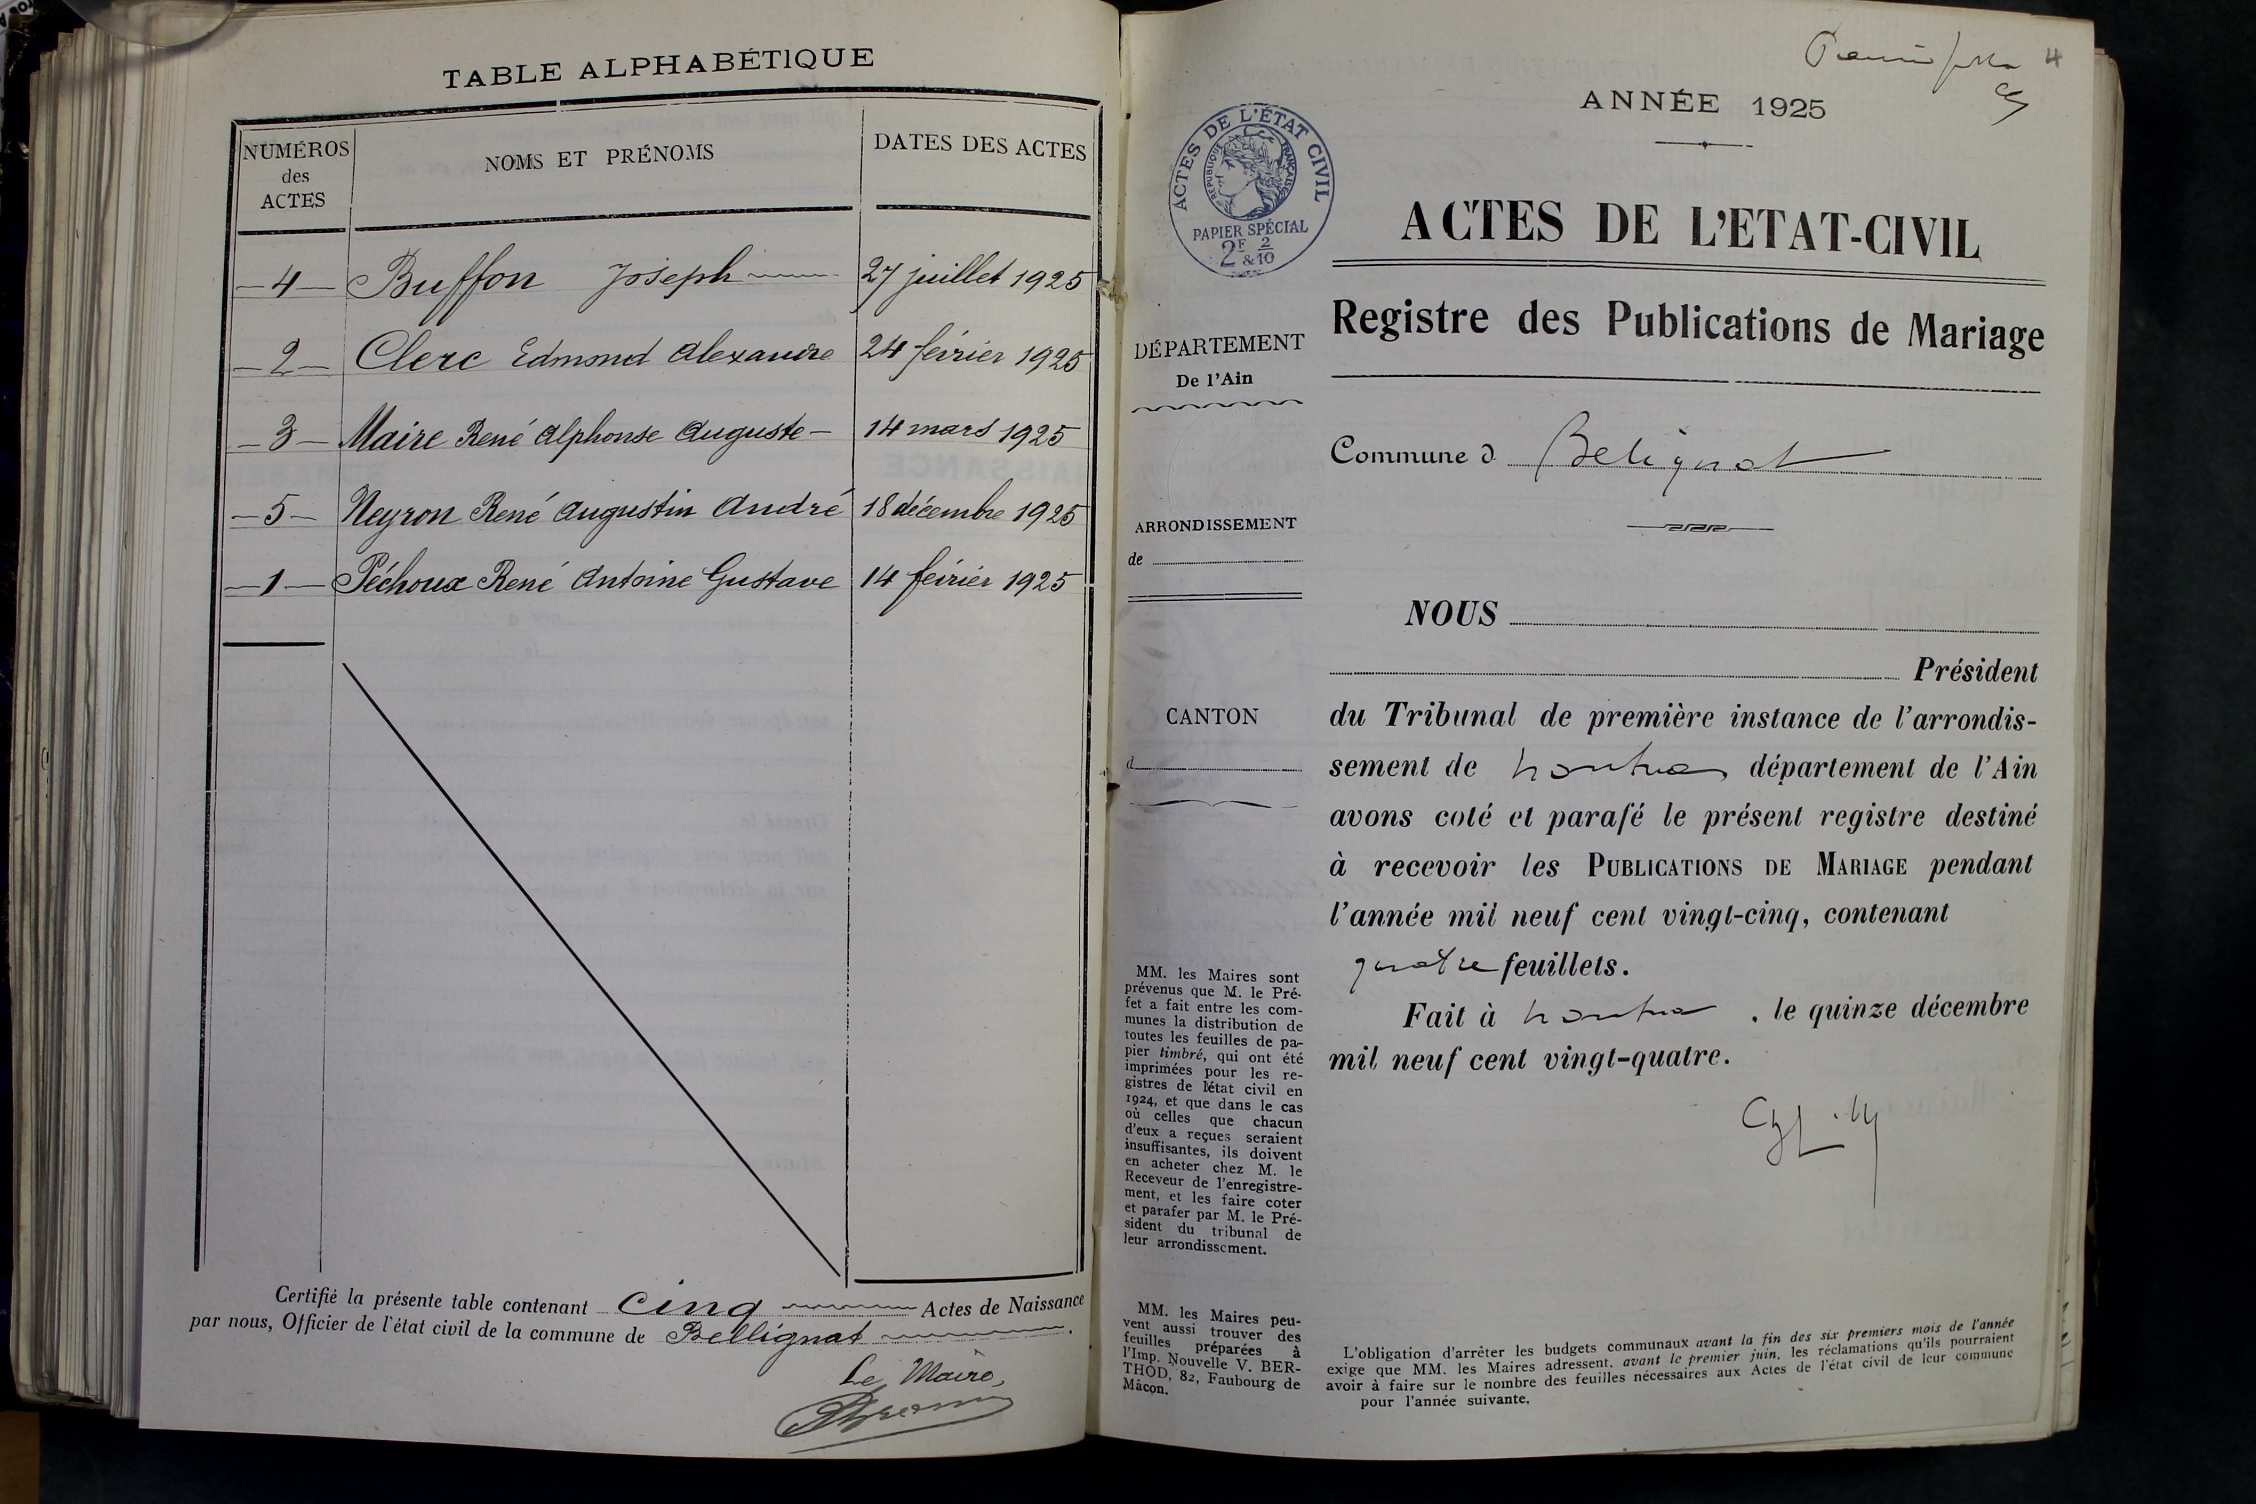 TABLE ALPHABÉTIQUE
NUMÉROS
des
ACTES
NOMS ET PRÉNOMS
DATES DES ACTES
—4— Buffon Joseph 27 juillet 1925
—2— Clerc Edmond Alexandre 24 février 1925
—3— Maire René Alphonse Auguste — 14 mars 1925
—5— Neyron René Augustin André 18 décembre 1925
—1— Péchoux René Antoine Gustave 14 février 1925
Certifié la présente table contenant cinq Actes de Naissance
par nous, Officier de l'état civil de la commune de Bellignat.
Le Maire,
4
ANNÉE 1925
ACTES DE L'ÉTAT CIVIL
RÉPUBLIQUE FRANÇAISE
PAPIER SPÉCIAL
2F & 2/10
ACTES DE L'ETAT-CIVIL
Registre des Publications de Mariage
DÉPARTEMENT
De l'Ain
Commune d Belignat
ARRONDISSEMENT
de
CANTON
d
NOUS
Président
du Tribunal de première instance de l'arrondis-
sement de Nantua, département de l'Ain
avons coté et parafé le présent registre destiné
à recevoir les PUBLICATIONS DE MARIAGE pendant
l'année mil neuf cent vingt-cinq, contenant
quatre feuillets.
Fait à Nantua, le quinze décembre
mil neuf cent vingt-quatre.
MM. les Maires sont
prévenus que M. le Pré-
fet a fait entre les com-
munes la distribution de
toutes les feuilles de pa-
pier timbré, qui ont été
imprimées pour les re-
gistres de l'état civil en
1924, et que dans le cas
où celles que chacun
d'eux a reçues seraient
insuffisantes, ils doivent
en acheter chez M. le
Receveur de l'enregistre-
ment, et les faire coter
et parafer par M. le Pré-
sident du tribunal de
leur arrondissement.
MM. les Maires peu-
vent aussi trouver des
feuilles préparées à
l'Imp. Nouvelle V. BER-
THOD, 82, Faubourg de
Mâcon.
L'obligation d'arrêter les budgets communaux avant la fin des six premiers mois de l'année
exige que MM. les Maires adressent, avant le premier juin, les réclamations qu'ils pourraient
avoir à faire sur le nombre des feuilles nécessaires aux Actes de l'état civil de leur commune
pour l'année suivante.